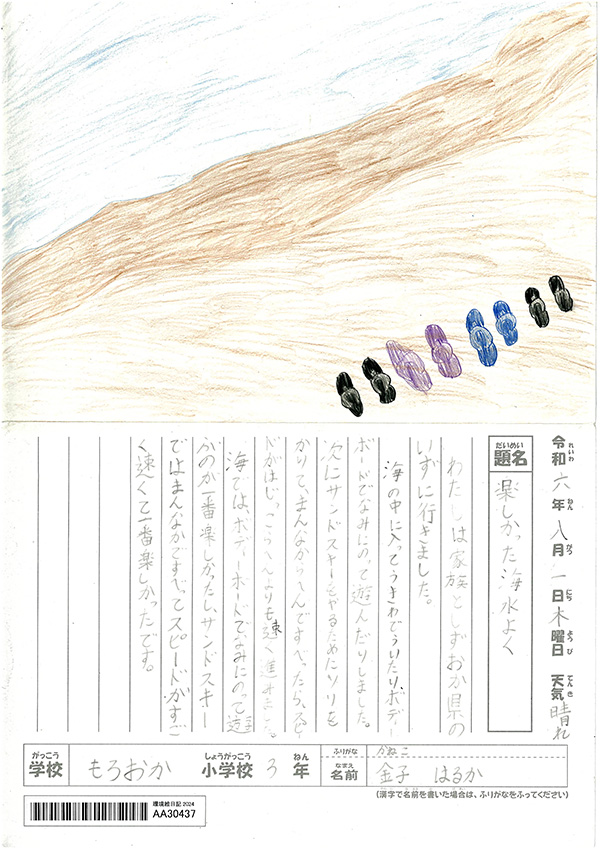 令和六年八月一日木曜日 天気晴れ
れいわ ねん がつ にち ようび てんき
だいめい
題名 楽しかった海水よく
わたしは家族としずおか県の
いずに行きました。
海の中に入ってうきわでういたり、ボディー
ボードでなみにのって遊んだりしました。
次にサンドスキーをやるためにソリを
かりて、まんなからへんですべったら、スピー
ドがはじっこらへんよりも速く進みました。
海では、ボディーボードでなみにのって遊
ぶのが一番楽しかったし、サンドスキー
ではまんなかですべってスピードがすご
く速くて一番楽しかったです。
がっこう しょうがっこう ねん
学校 もろおか 小学校 3年
ふりがな かねこ
なまえ
名前 金子 はるか
(漢字で名前を書いた場合は、ふりがなをふってください)
環境絵日記 2024
AA30437